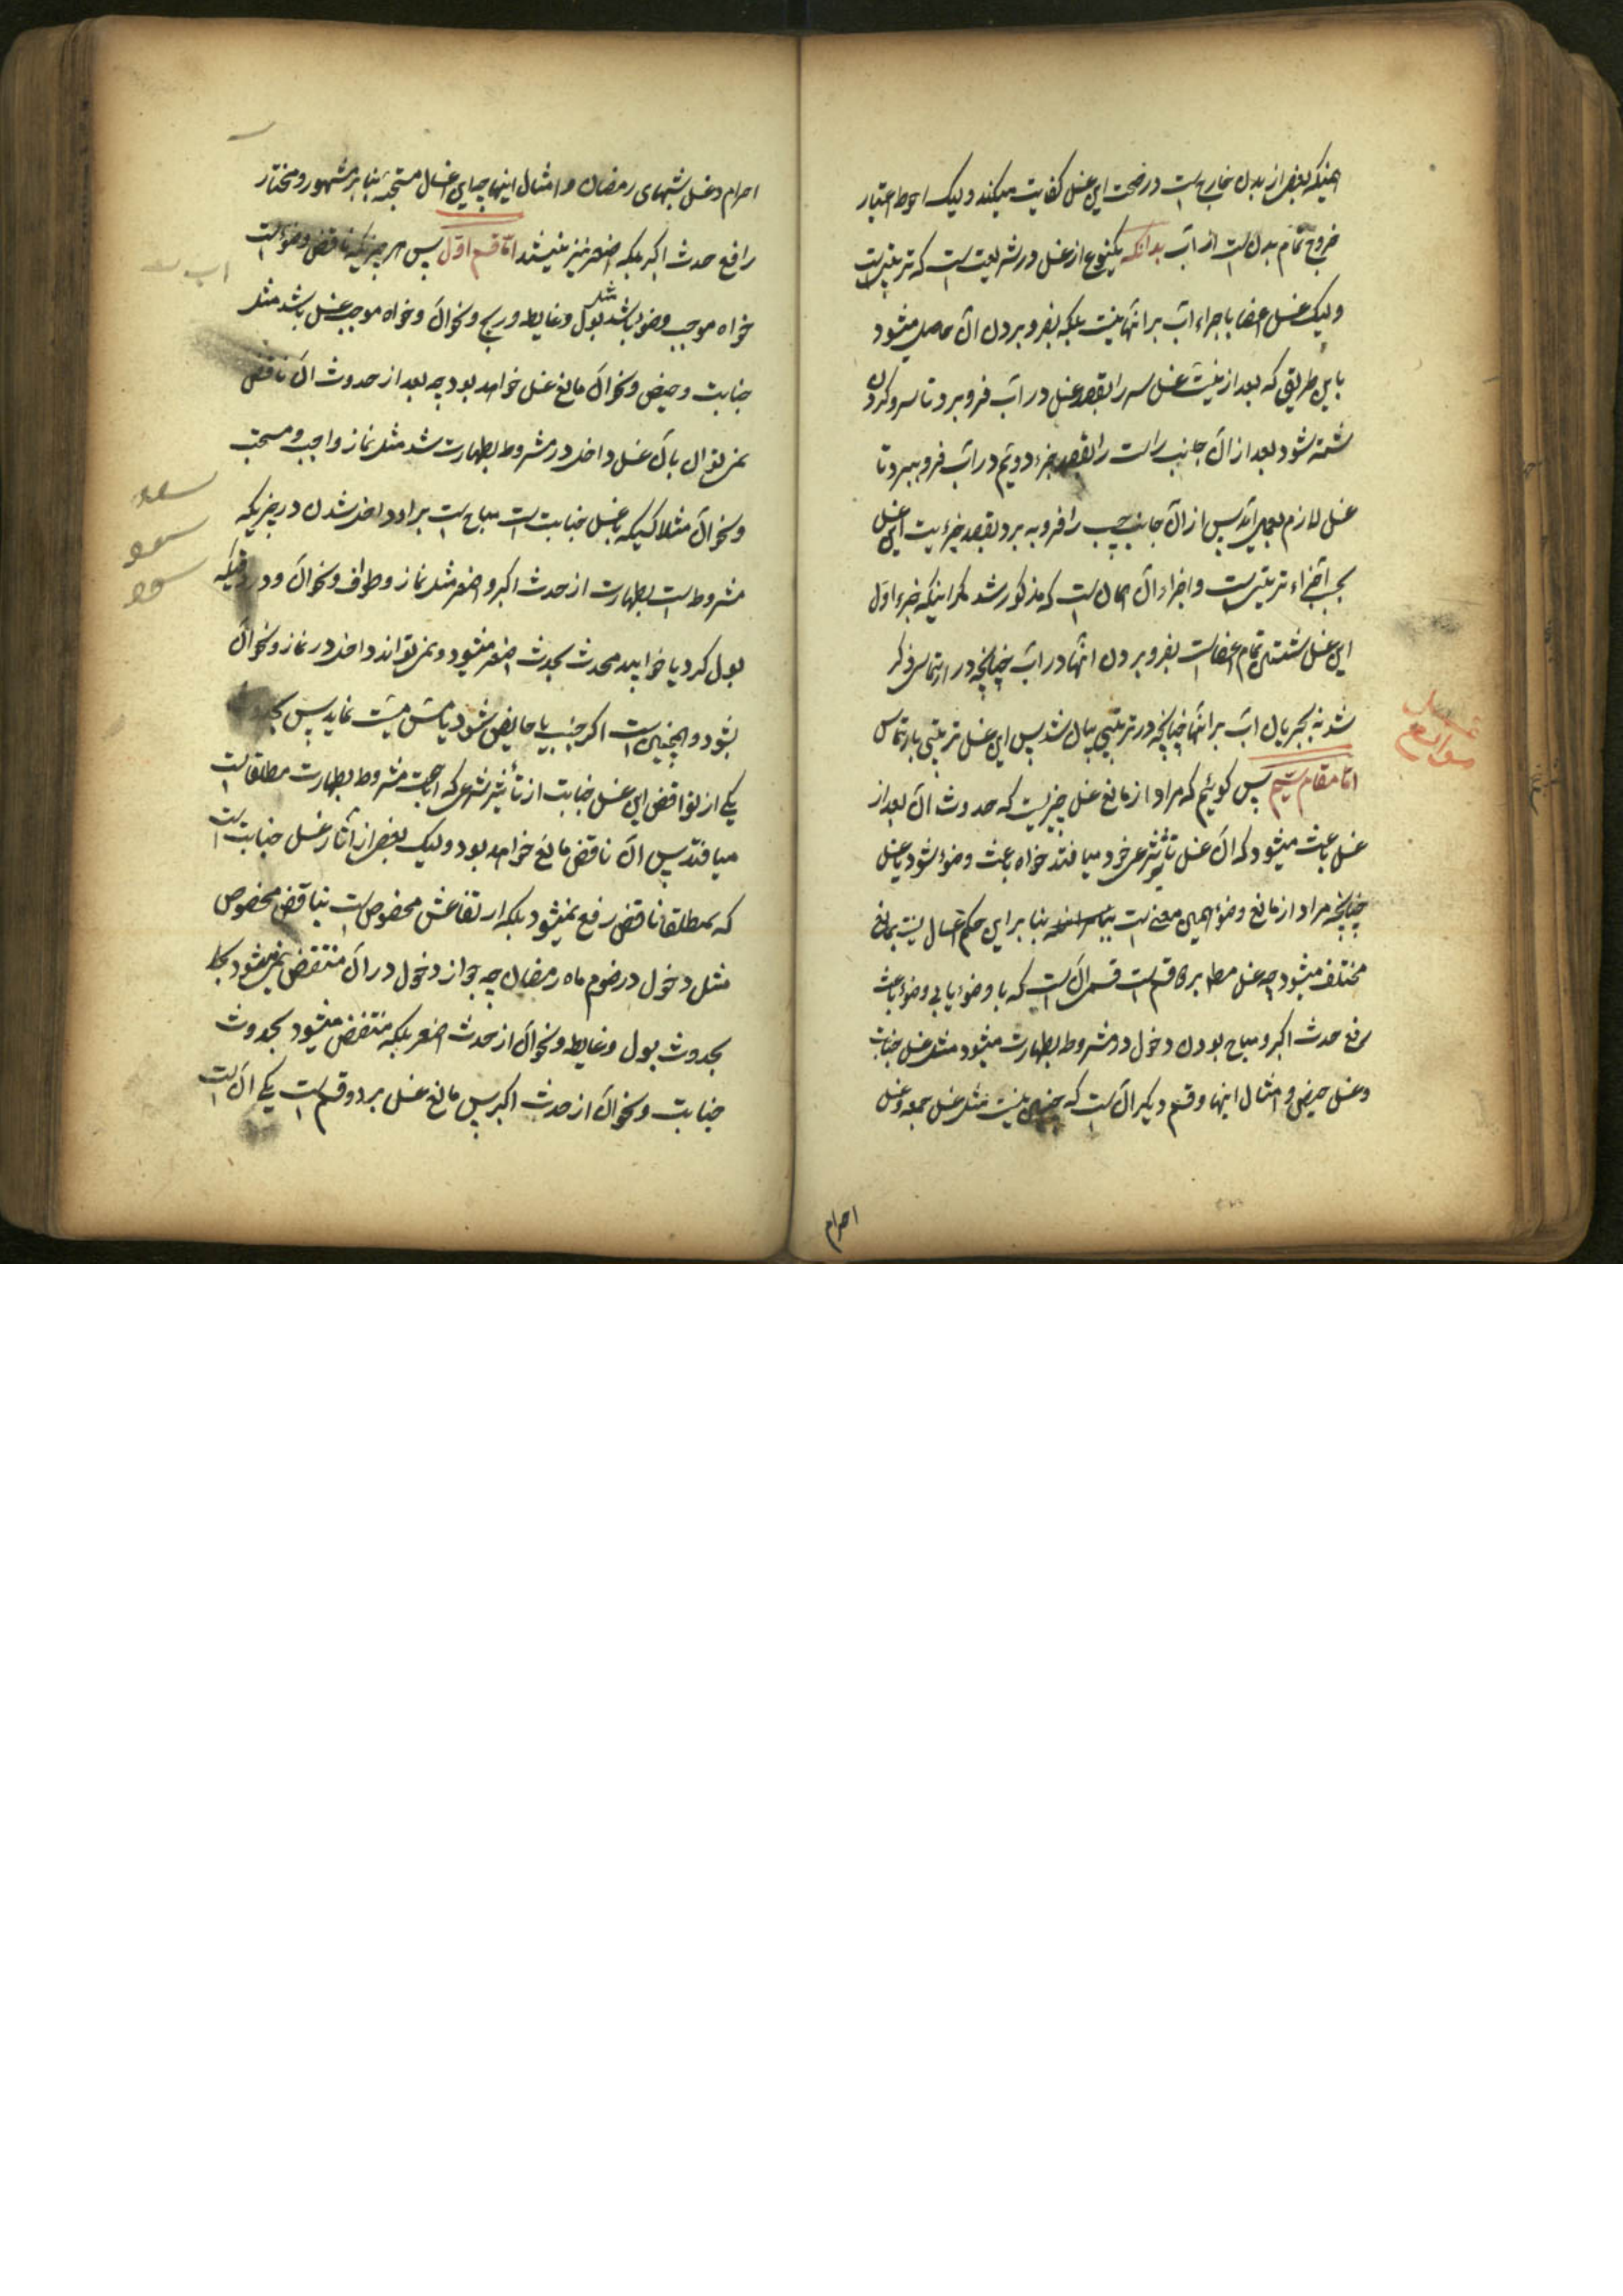 همینکه بعضی از بدن خارج است در صحت این غسل کفایت میکند ولیک احوط اعتبار
خروج تمام بدن است از آب بدانکه یکنوع از غسل در شریعت است که ترتیبی است
ولیک غسل اعضا باجراء آب بر آنها نیست بلکه بفرو بردن آن حاصل میشود
باین طریق که بعد از نیت غسل سر را بقصد غسل در آب فرو برد تا سر و گردن
شسته شود بعد از آن جانب راست را بقصد جزء دویم در آب فرو ببرد تا
غسل لازم بعمل آید پس از آن جانب چپ را فرو به برد بقصد جزئیت این غسل
بحسب اجزاء ترتیبی است و اجزاء آن همان است که مذکور شد مگر اینکه جزء اول
این غسل شستن تمام اعضا است بفرو بردن آنها در آب چنانچه در ارتماسی ذکر
شد نه بجریان آب بر آنها چنانچه در ترتیبی بیان شد پس این غسل ترتیبی بارتماس
امّا مقام سیم پس گوئیم که مراد از مانع غسل چیزیست که حدوث آن بعد از
غسل باعث میشود که آن غسل تأثیر شرعی خود میافتد خواه باعث وضوء شود یا غسل
چنانچه مراد از مانع وضوء همین معنی است بنا بر این حکم اغسال نسبت بمانع
مختلف میشود چه غسل مطلا بر دو قسم است قسمی آن است که با وضوء یا بی وضوء باعث
رفع حدث اکبر و مباح بودن دخول در مشروط بطهارت میشود مثل غسل جنابت
و غسل حیض و امثال اینها و قسم دیگر آن است که چنین نیست مثل غسل جمعه و غسل
موانع
احرام
احرام و غسل شبهای رمضان و امثال اینها چه این اغسال مستحبه بنا بر مشهور و مختار
رافع حدث اکبر بلکه اصغر نیز نیستند امّا قسم اوّل پس هر چیزیکه ناقض وضوء است
خواه موجب وضو باشد مثل بول و غایط و ریح و نحو آن و خواه موجب غسل باشد مثل
جنابت و حیض و نحو آن مانع غسل خواهد بود چه بعد از حدوث آن ناقض
نمیتوان بآن غسل داخل در مشروط بطهارت شد مثل نماز واجب و مستحب
و نحو آن مثلا کسیکه با غسل جنابت است مباح است بر او داخل شدن در چیزیکه
مشروط است بطهارت از حدث اکبر و اصغر مثل نماز و طواف و نحو آن و در وقتیکه
بول کرد یا خوابید محدث بحدث اصغر میشود و نمیتواند داخل در نماز و نحو آن
بشود و همچنین است اگر جنب یا حایض شود یا مسّ میّت نماید پس
یکی از نواقض این غسل جنابت از تأثیر شرعی که اباحت مشروط بطهارت مطلقا است
میافتد پس آن ناقض مانع خواهد بود ولیک بعضی از آثار غسل جنابت است
که بمطلقا ناقض رفع نمیشود بلکه ارتفاعش مخصوص است بناقض مخصوص
مثل دخول در صوم ماه رمضان چه جواز دخول در آن منتقض نمیشود
بحدوث بول و غایط و نحو آن از حدث اصغر بلکه منتقض میشود بحدوث
جنابت و نحو آن از حدث اکبر پس مانع غسل بر دو قسم است یکی آن است